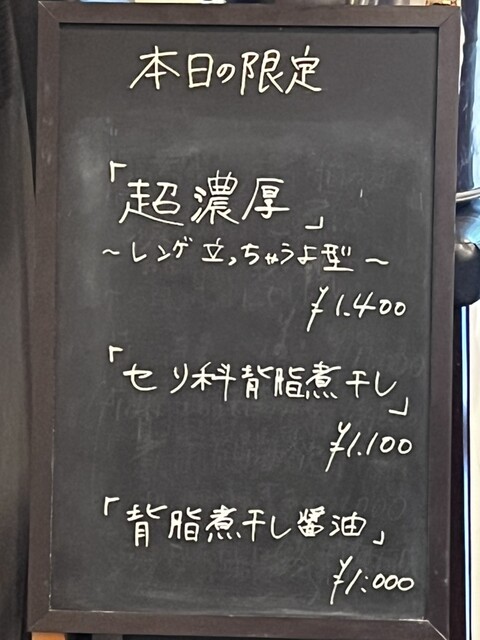 本日の限定
「超濃厚」
～レンゲ立っちゃうよ型～
¥1.400
「セリ科背脂煮干し」
¥1.100
「背脂煮干し醤油」
¥1.000